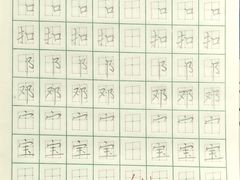 口 口 口 口 口 口
扣 扣 扣 扣 扣 扣
阝 阝 阝 阝 阝
邓 邓 邓 邓 邓 邓
宀 宀 宀 宀 宀 宀
宝 宝 宝 宝 宝 宝